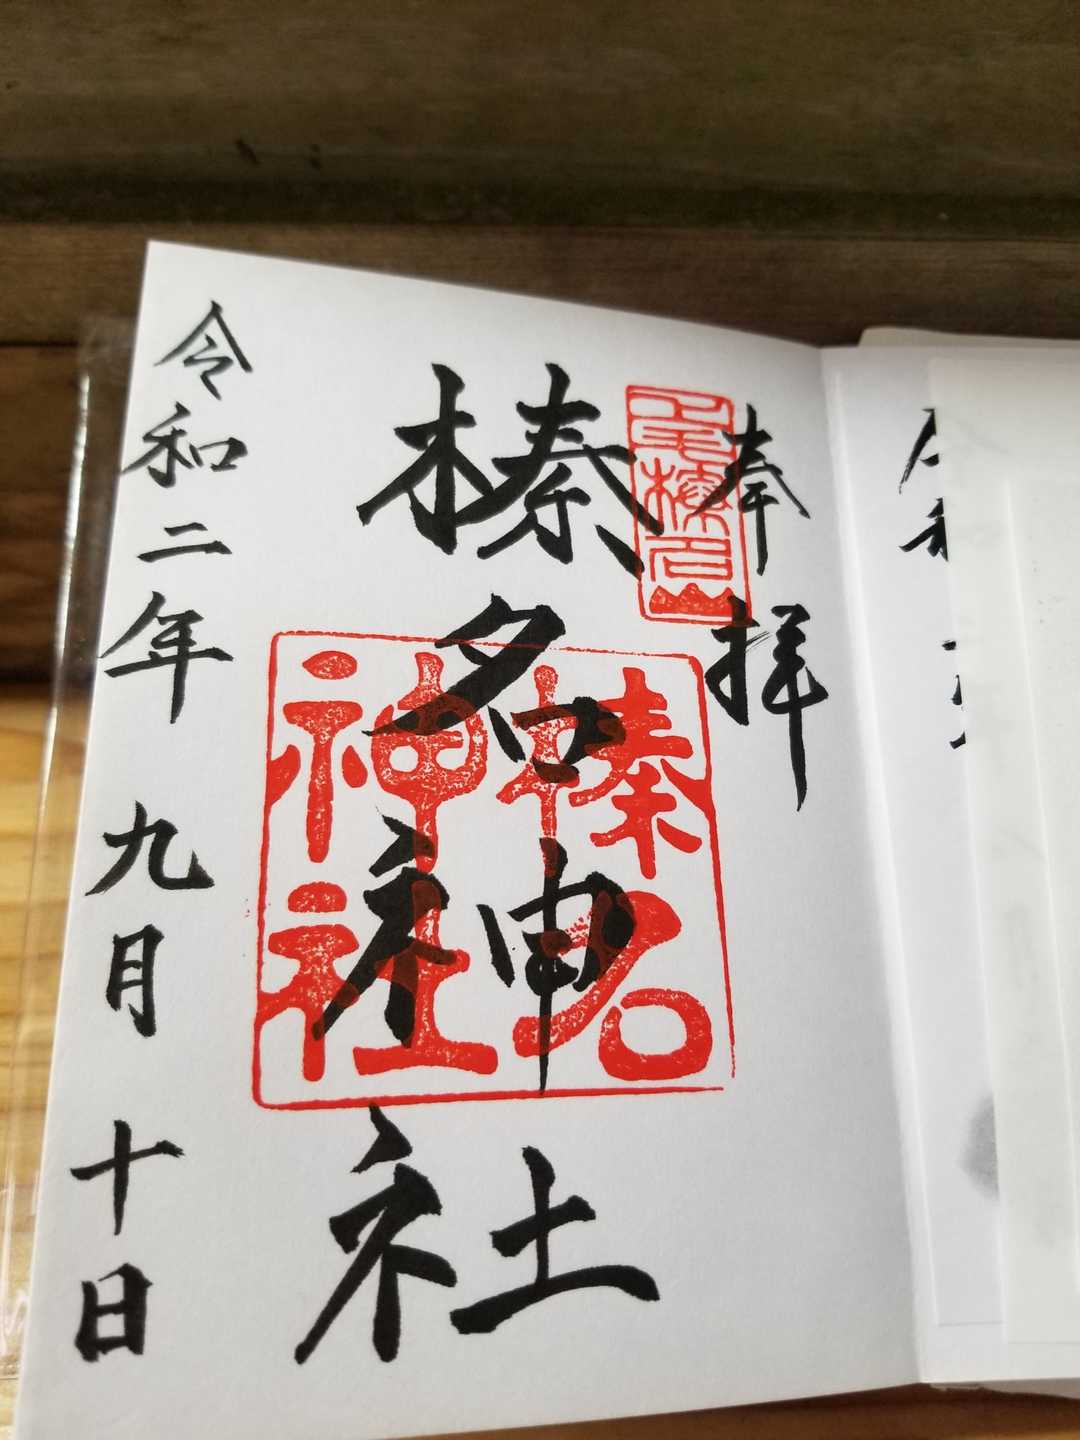 奉拝
上毛榛名山
榛名神社
榛名
神社
令和二年九月十日